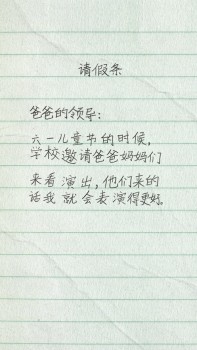 请假条
爸爸的领导:
六一儿童节的时候,
学校邀请爸爸妈妈们
来看演出,他们来的
话我就会表演得更好。